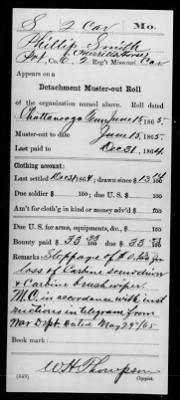 S 2 Cav Mo.
Phillip Smith
Pvt, Co. E, 2 Reg't Missouri Cav
Appears on a
Detachment Muster-out Roll
of the organization named above. Roll dated
Chattanooga Tenn June 15, 1865.
Muster-out to date June 15, 1865.
Last paid to Dec 31, 1864.
Clothing account:
Last settled Dec 31, 1864; drawn since $ 13
Due soldier $ 100; due U.S. $ 100
Am't for cloth'g in kind or money adv'd $ 100
Due U.S. for arms, equipments, &c., $ 100
Bounty paid $ 100; due $ 100
Remarks: Stoppage
loss of Carbine screwdriver
& Carbine brush wiper.
M.O. in accordance with inst
ructions in telegram from
War Dept. dated May 29/65
Book mark:
W H Thompson
(349) Copyist.